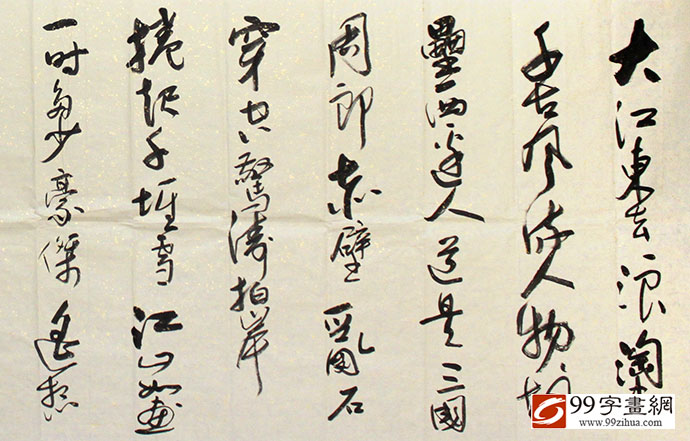 大江東去浪淘
千古风流人物故
壘西邊人道是三國
周郎赤壁亂石
穿空驚濤拍岸
捲起千堆雪江山如畫
一时多少豪傑遙想
99字畫網
www.99zihua.com